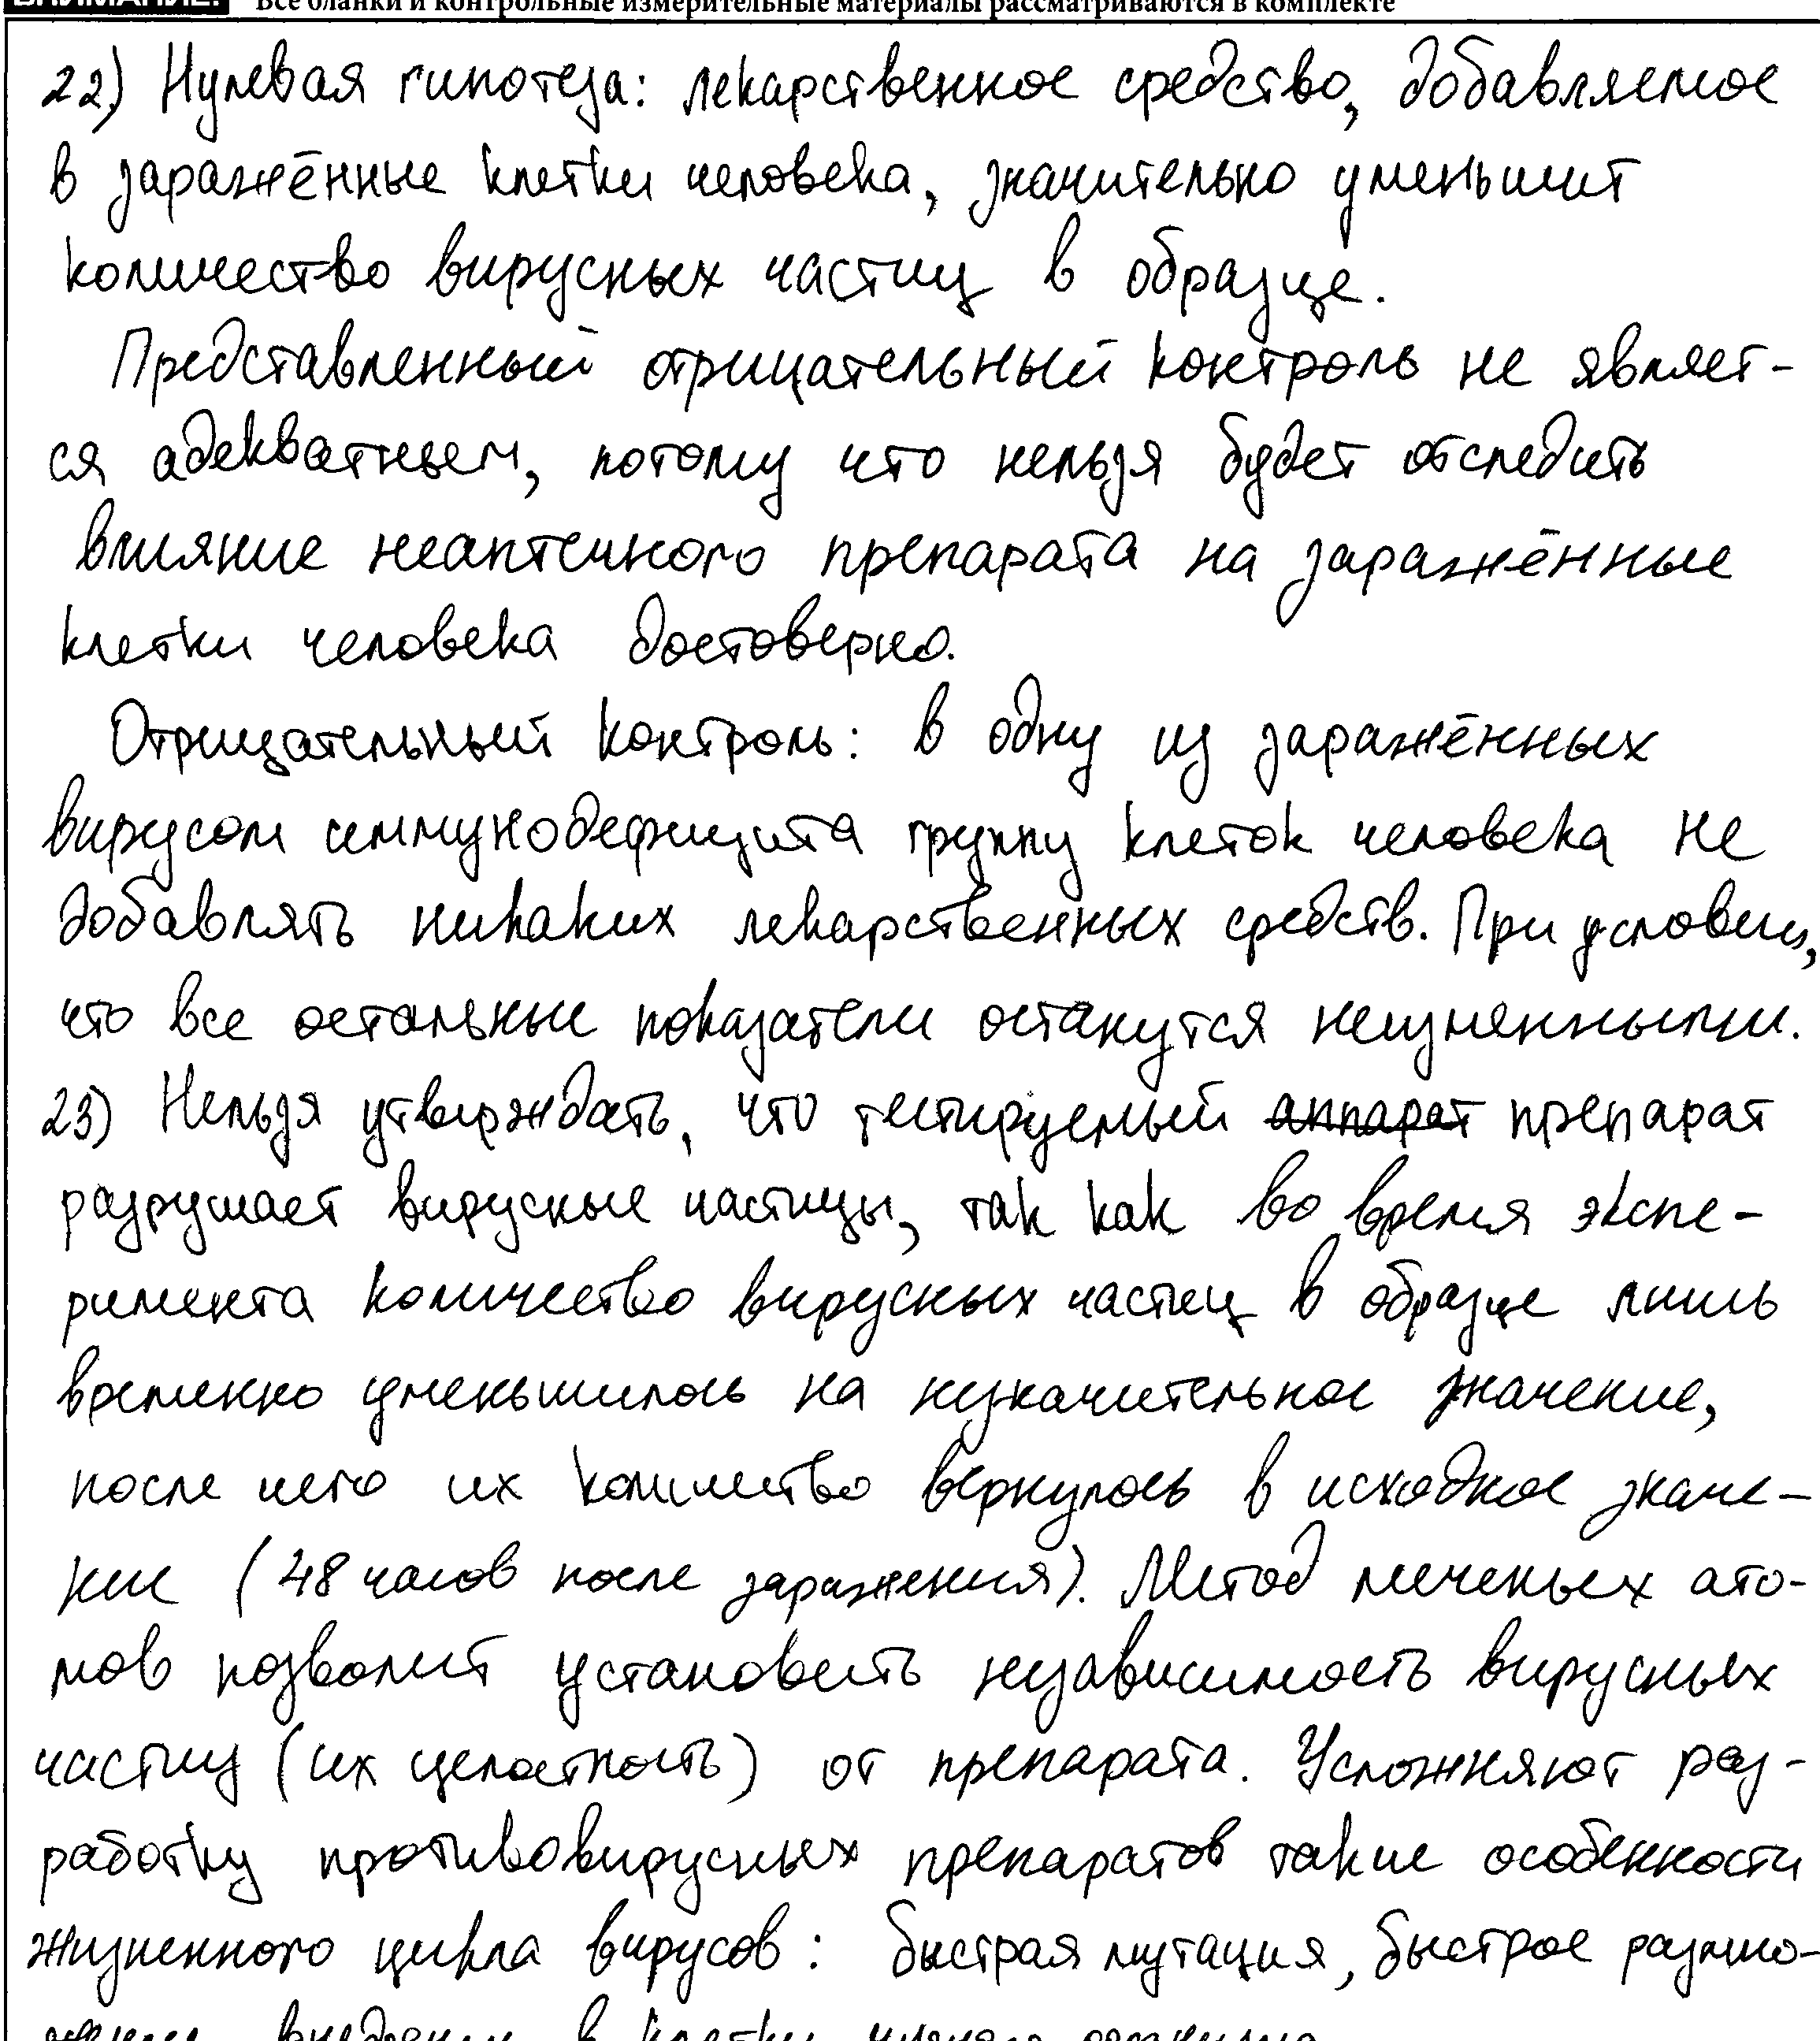 ВНИМАНИЕ! Все бланки и контрольные измерительные материалы рассматриваются в комплекте
22) Нулевая гипотеза: лекарственное средство, добавляемое
в заражённые клетки человека, значительно уменьшит
количество вирусных частиц в образце.
Представленный отрицательный контроль не являет-
ся адекватным, потому что нельзя будет отследить
влияние неаптечного препарата на заражённые
клетки человека достоверно.
Отрицательный контроль: в одну из заражённых
вирусом иммунодефицита группу клеток человека не
добавлять никаких лекарственных средств. При условии,
что все остальные показатели останутся неизменными.
23) Нельзя утверждать, что тестируемый аппарат препарат
разрушает вирусные частицы, так как во время экспе-
римента количество вирусных частиц в образце лишь
временно уменьшилось на незначительное значение,
после чего их количество вернулось в исходное значе-
ние (48 часов после заражения). Метод меченых ато-
мов позволит установить независимость вирусных
частиц (их целостность) от препарата. Усложняют раз-
работку противовирусных препаратов такие особенности
жизненного цикла вирусов: быстрая мутация, быстрое размно-
жение, внедрение в клетки